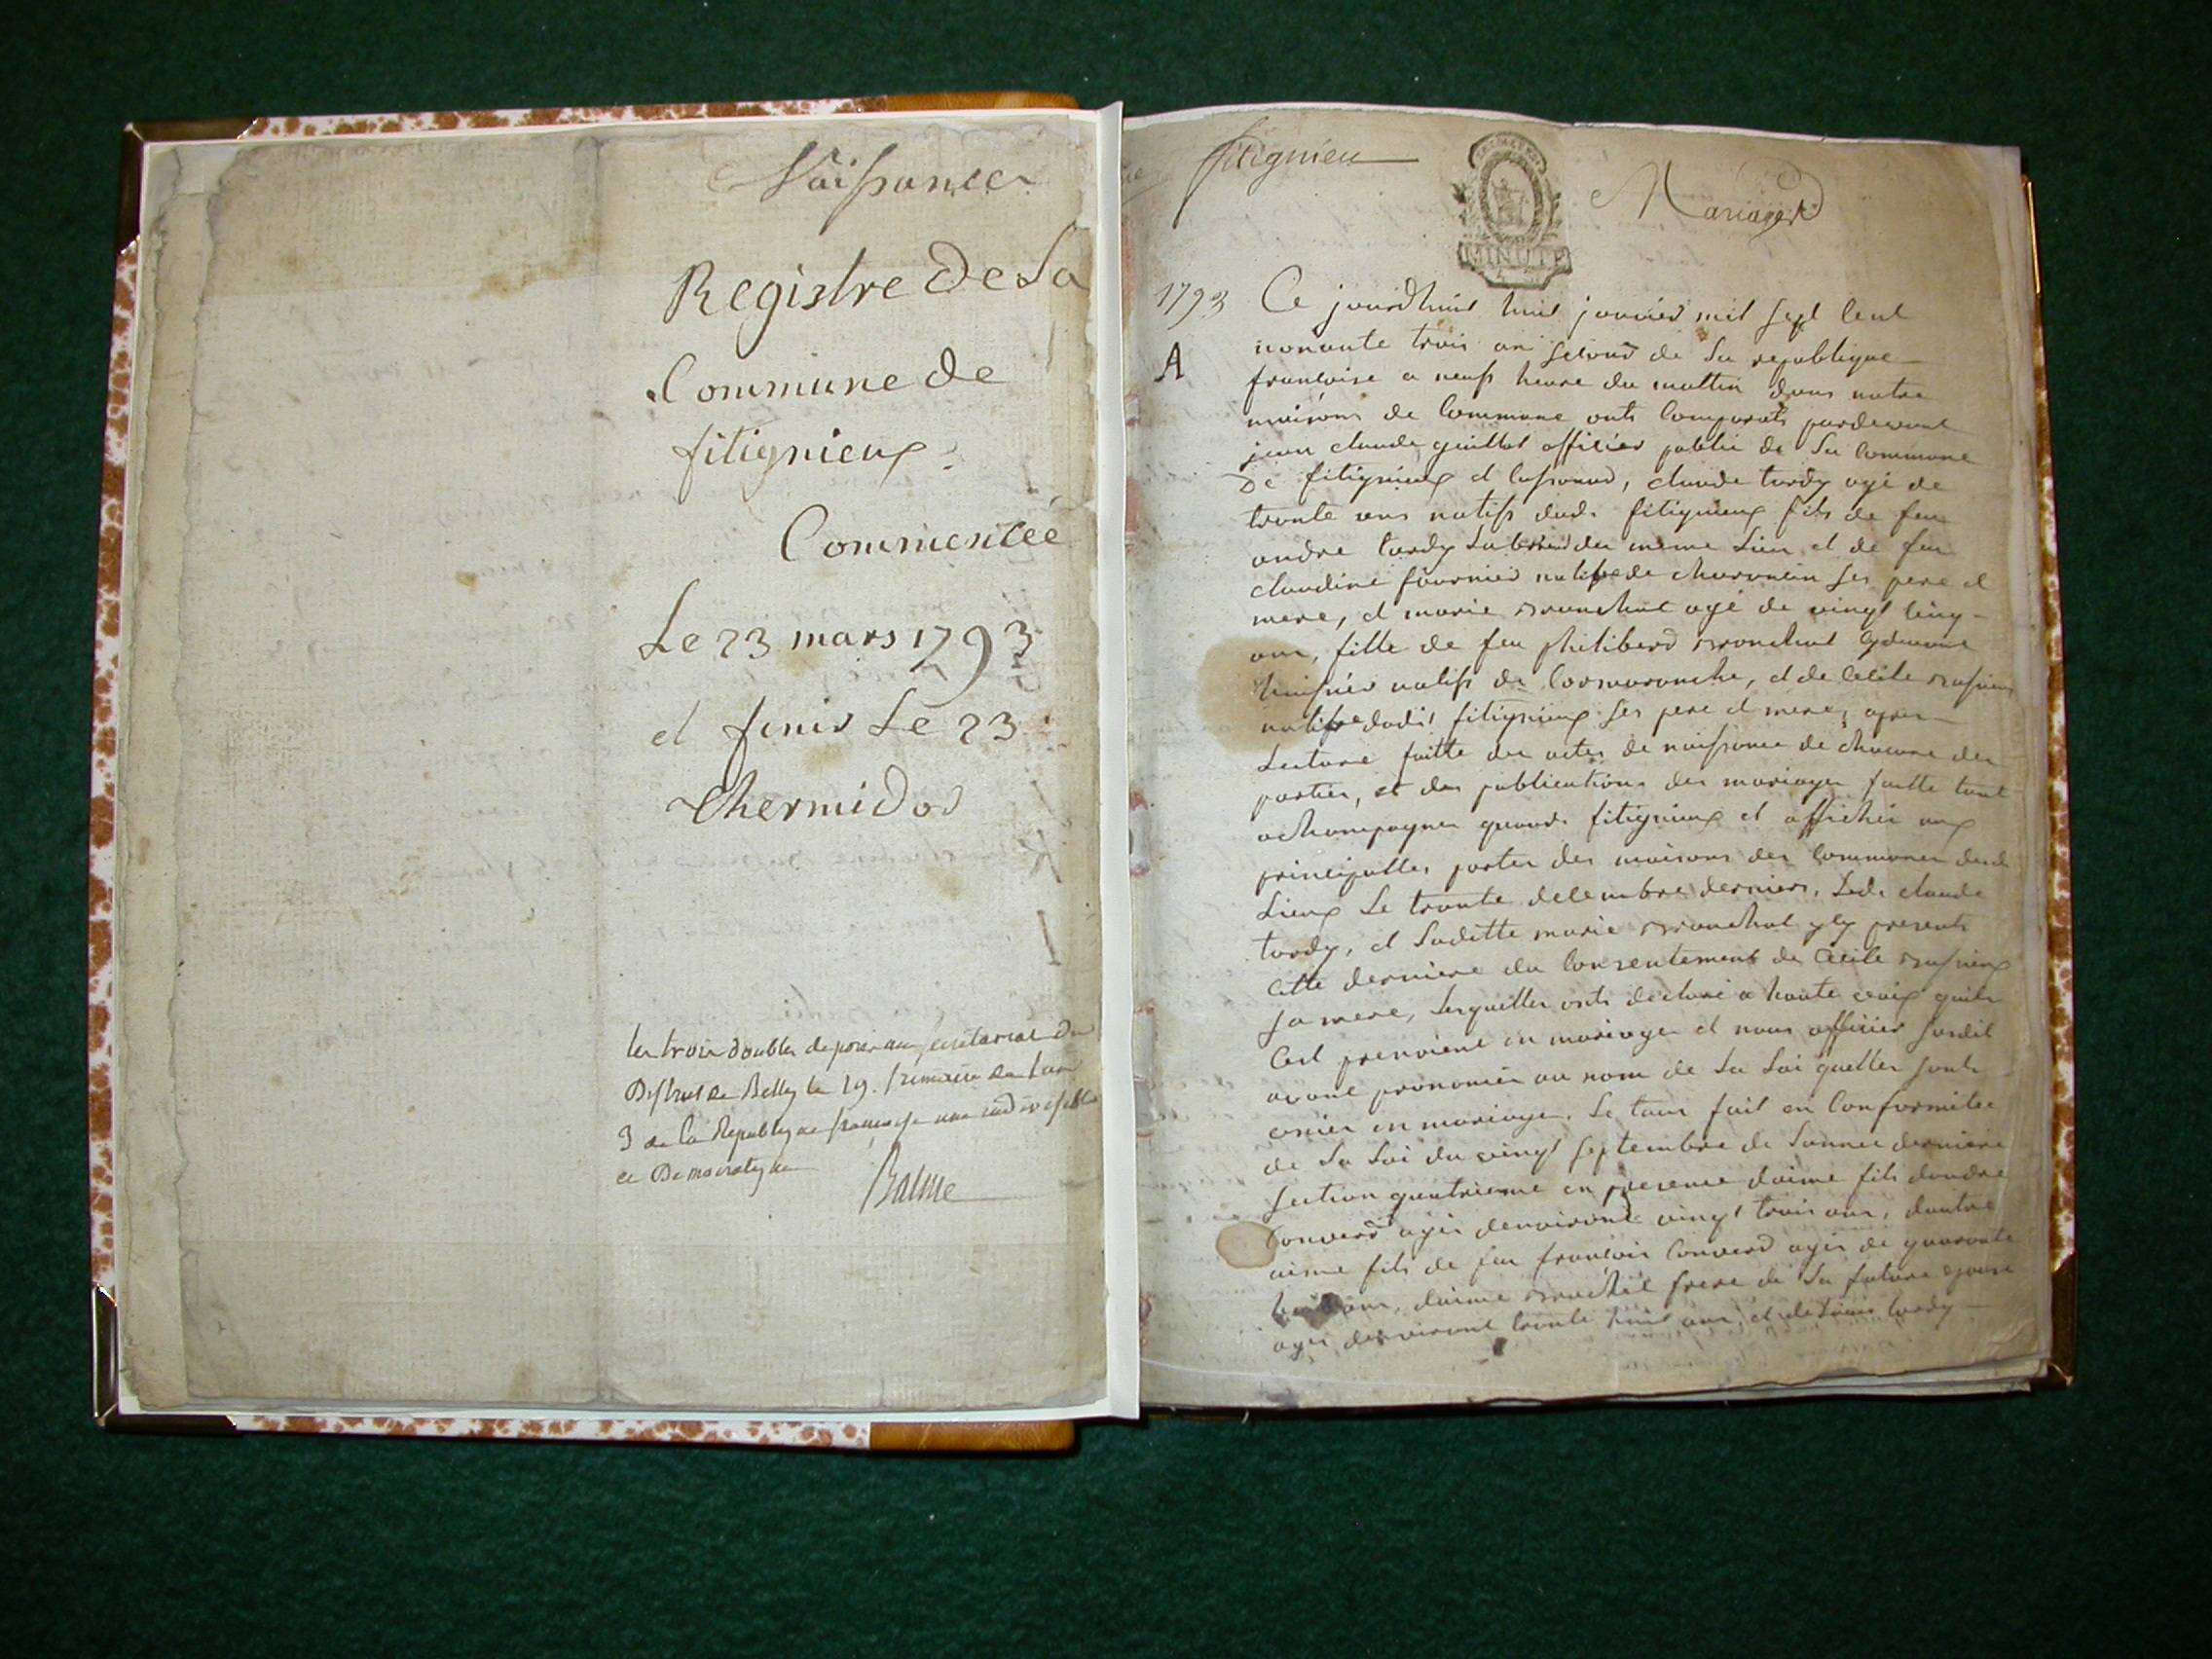 Naissances
Registre de La
Commune de
fitignieux
Commencéé
Le 23 mars 1793
et finis Le 23
thermidor
les trois doubles deposés au secretariat du
District de Belley le 19. frimaire de l'an
3 de la Republique francoise une indivisible
et Democratique
Balme
fitignieu
Mariages
MINUTE
1793
A
Ce jourdhuit huit janvier mil sept cent
nonante trois an second de La republique
francoise a neufs heure du mattin dans notre
maisons de Commune onts Comparuts pardevant
jean claude guillot officier public de La Commune
De fitignieux et , claude tardy agé de
trente ans natifs dudi fitignieux fils de feu
andre tardy du meme Lieu et de feu
claudine fournier natifve de ses pere et
mere, et marie agé de vingt cinq
ans, fille de feu philiberd
natifs de Cormoranche, et de Cecile
natifve dudit fitignieux ses pere et mere, apres
Lecture faitte des actes de naissance de chacune des
parties, et des publications des mariages faitte tant
achampagne quaudi fitignieux et affichés aux
principalles portes des maisons des Communes desd
Lieux Le trente decembre dernier, Ledi claude
tardy, et Laditte marie presents
cette derniere du Consentement de Cecile
sa mere, Lesquelles onts declaré a haute voix quils
prenoient en mariage et nous officier susdit
avons prononcer au nom de La Loi quelles sonts
unies en mariage. Le tous fait en Conformitée
de La Loi du vingt septembre de Lannee derniere
section quatrieme en presence daime fils dandre
Converd agés denvironts vingt trois ans, dautre
aime fils de feu francois Converd agés de quarante
ans, daime frere de La future epouse
agés denvironts trente huit ans, et de tardy